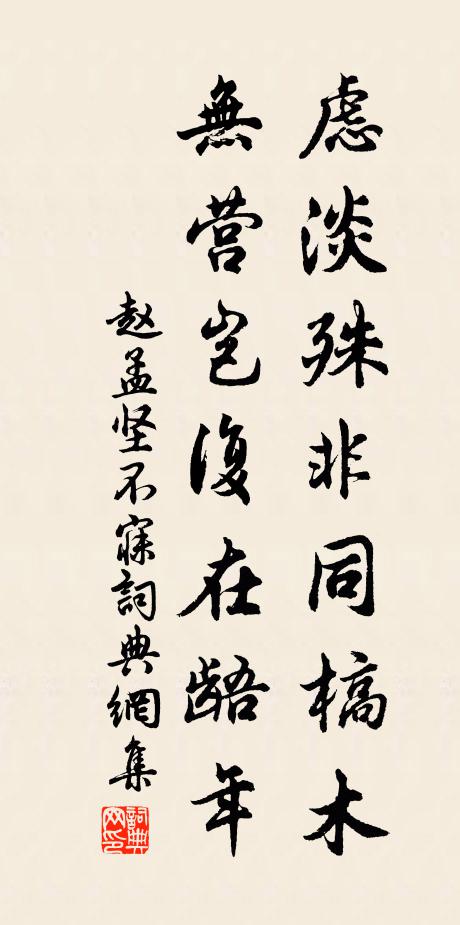 慮淡殊非同槁木
無营岂復在齬年
赵孟坚不寐詞典網集
詞典网印